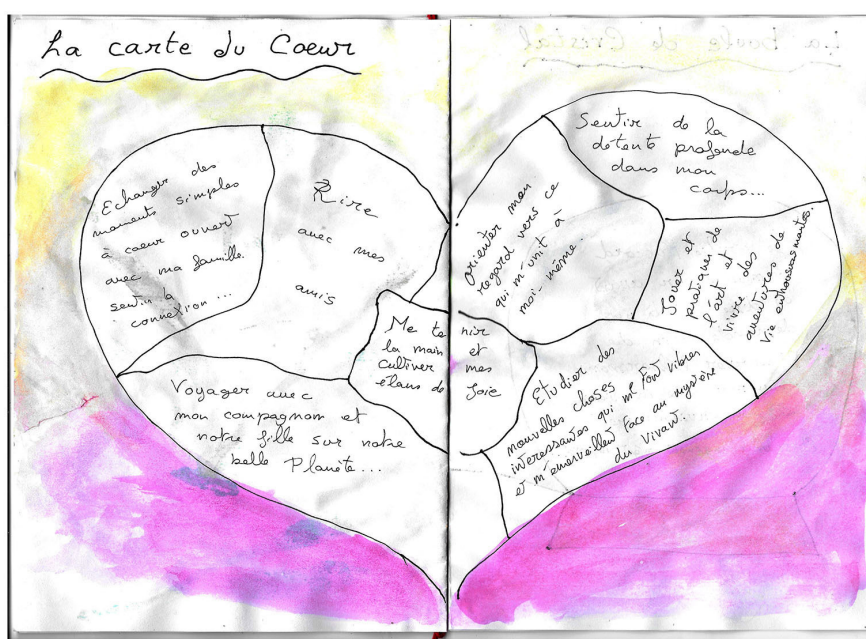 La carte du Coeur
Echanger des
moments simples
à coeur ouvert
avec ma famille.
sentir la
connexion...
Rire
avec mes
amis
Me tenir
la main et
cultiver mes
élans de Joie
Voyager avec
mon compagnon et
notre fille sur notre
belle Planète...
orienter mon
regard vers ce
qui m'unit à
moi-même.
Sentir de la
détente profonde
dans mon
corps...
Jouer et
pratiquer de
l'art et
vivre des
aventures de
Vie enthousiasmantes.
Etudier des
nouvelles choses
interessantes qui me font vibrer
et m'émerveillent face au mystère
du Vivant.
La boule de Cristal